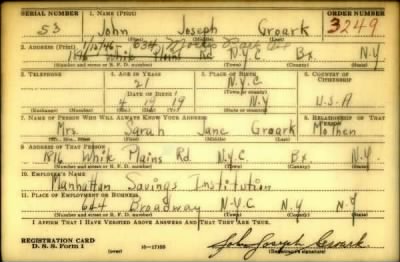 SERIAL NUMBER 1. NAME (Print) ORDER NUMBER
53 John Joseph Groark 3249
(First) (Middle) (Last)
2. ADDRESS (Print) 1/15/46 634
1816 White Plains Rd N.Y.C. Bx. N.Y
(Number and street or R. F. D. number) (Town) (County) (State)
3. TELEPHONE 4. AGE IN YEARS 5. PLACE OF BIRTH 6. COUNTRY OF CITIZENSHIP
21 N.Y.C.
DATE OF BIRTH (Town or county)
4 17 19 N.Y U.S.A
(Exchange) (Number) (Mo.) (Day) (Yr.) (State or country)
7. NAME OF PERSON WHO WILL ALWAYS KNOW YOUR ADDRESS 8. RELATIONSHIP OF THAT PERSON
Mrs. Sarah Jane Groark Mother
(Mr., Mrs., Miss) (First) (Middle) (Last)
9. ADDRESS OF THAT PERSON
1816 White Plains Rd. N.Y.C. Bx. N.Y.
(Number and street or R. F. D. number) (Town) (County) (State)
10. EMPLOYER'S NAME
Manhattan Savings Institution
11. PLACE OF EMPLOYMENT OR BUSINESS
644 Broadway N.Y.C N.Y N.Y
(Number and street or R. F. D. number) (Town) (County) (State)
I AFFIRM THAT I HAVE VERIFIED ABOVE ANSWERS AND THAT THEY ARE TRUE.
REGISTRATION CARD
D. S. S. Form 1 (over) 16—17105 John Joseph Groark
(Registrant's signature)